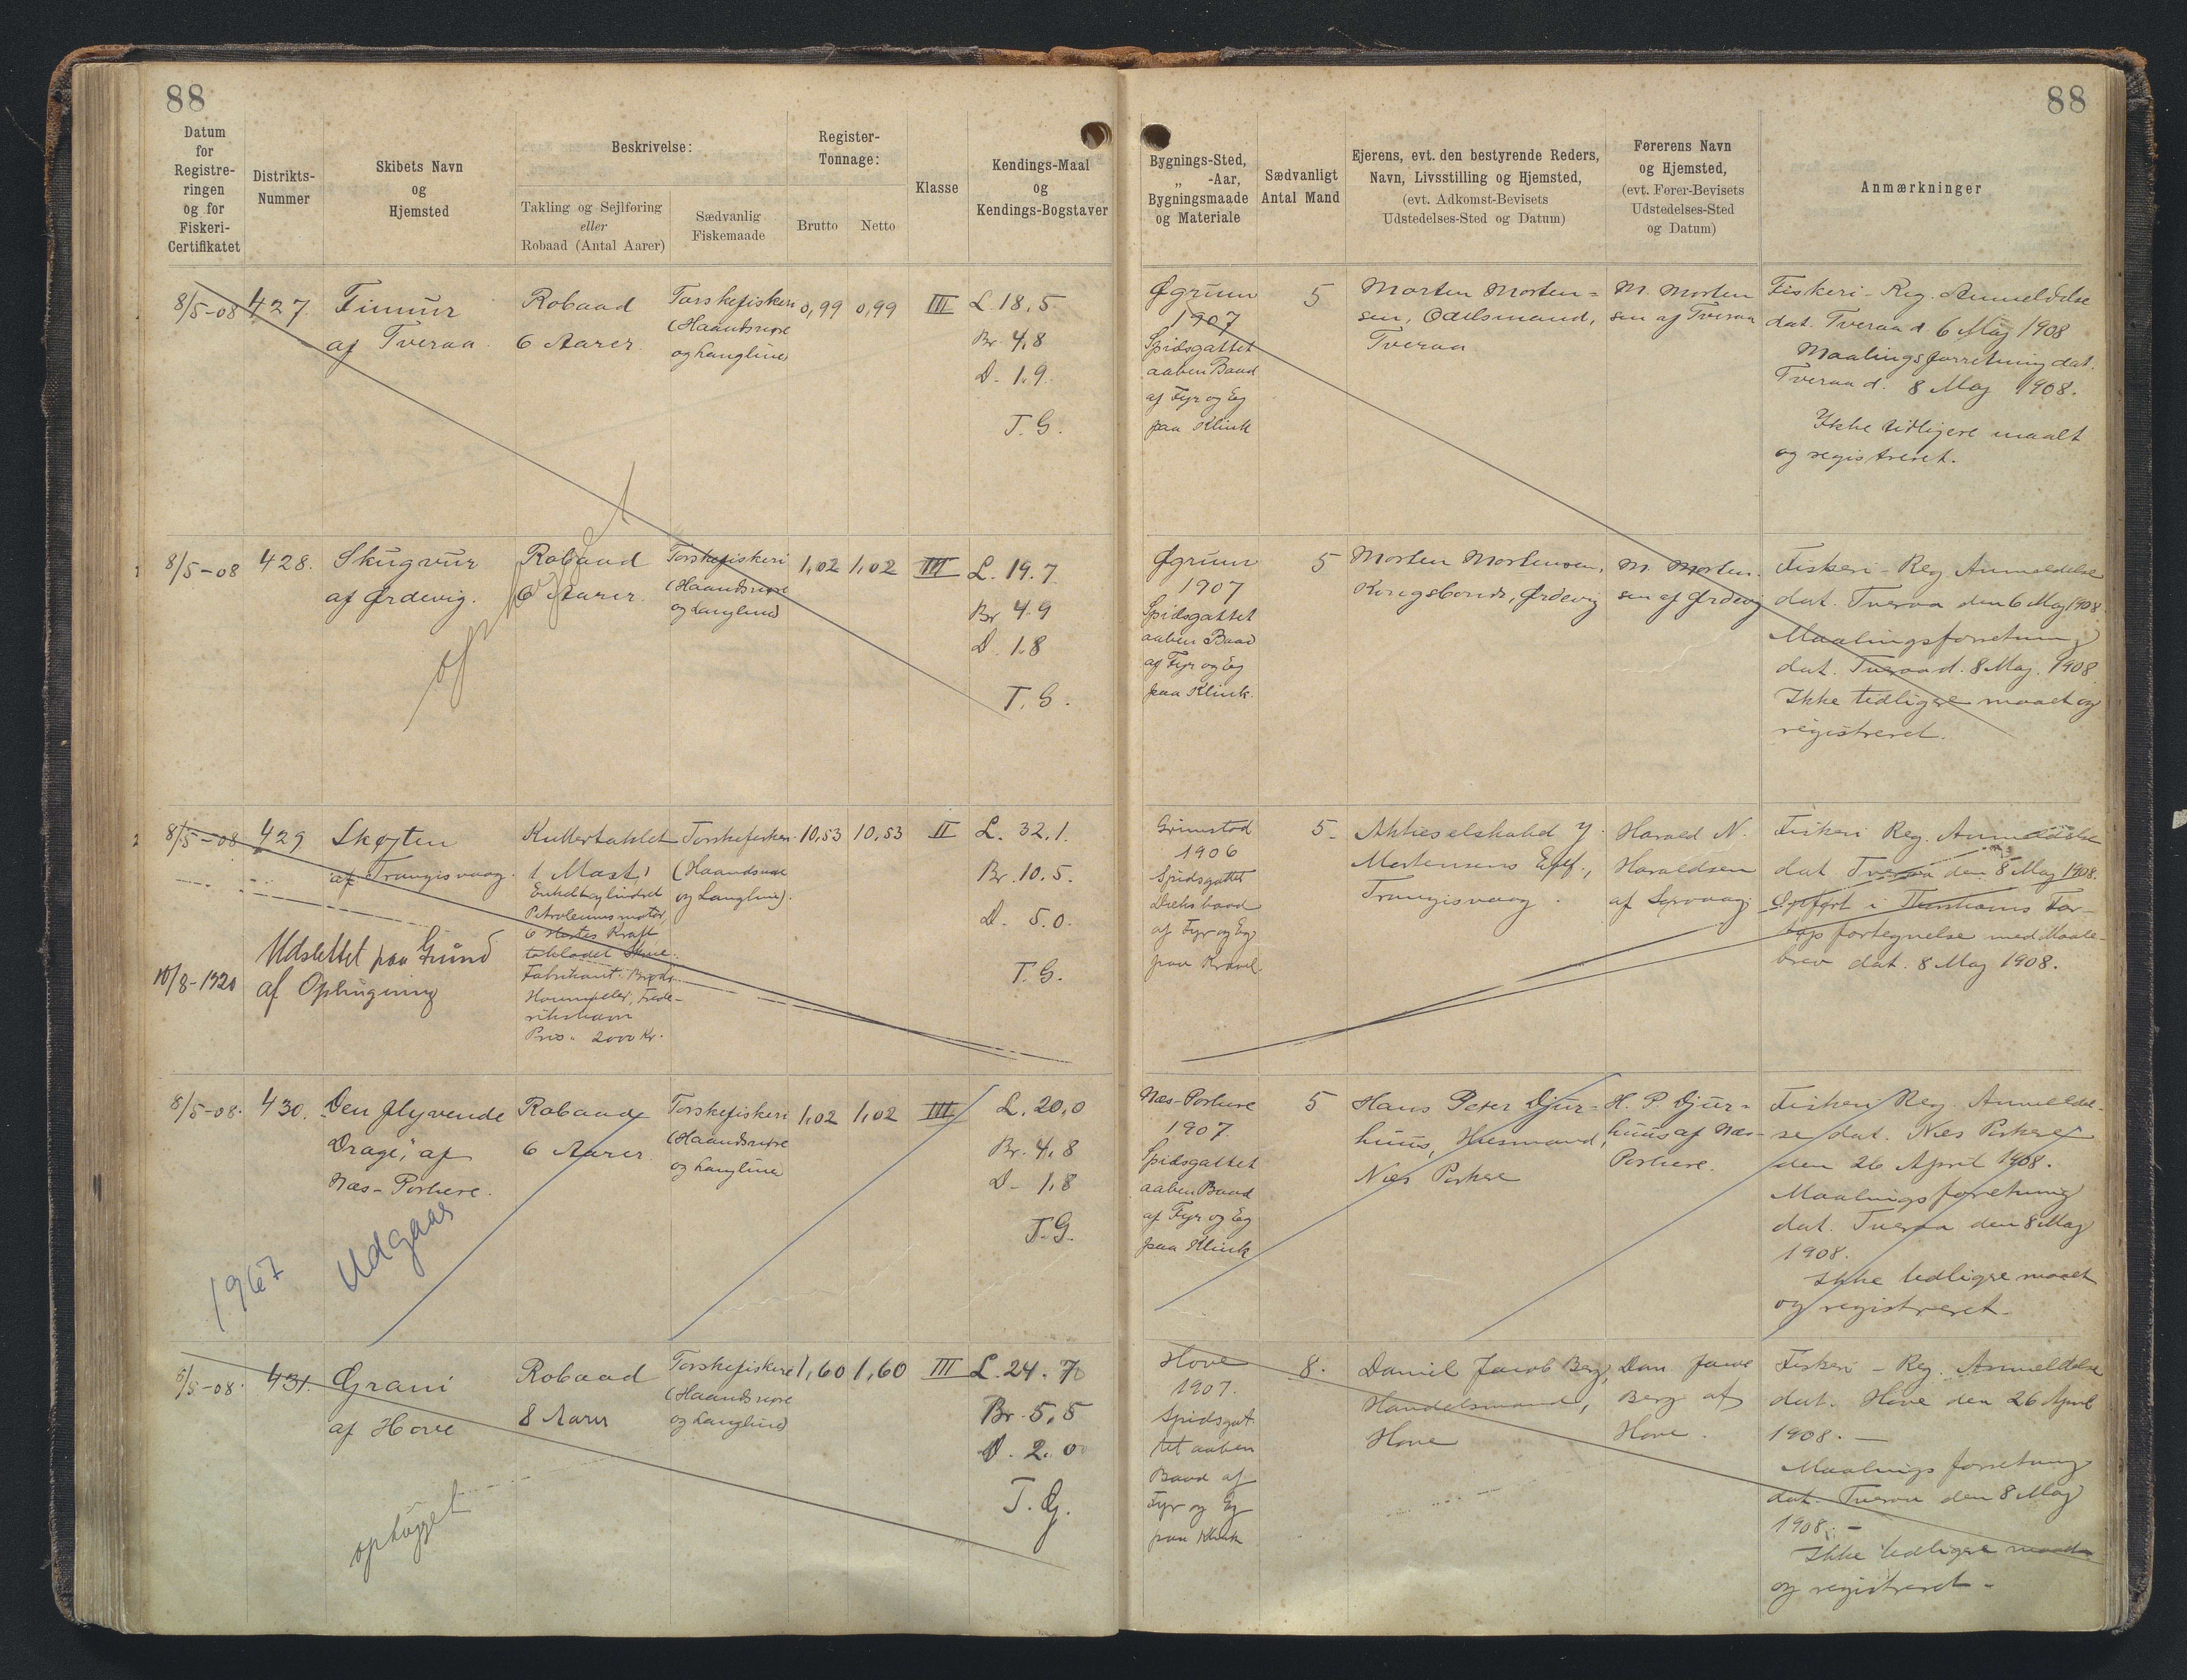 88
88
Datum
for
Registre-
ringen
og for
Fiskeri-
Certifikatet
Distrikts-
Nummer
Skibets Navn
og
Hjemsted
Beskrivelse:
Takling og Sejlføring
eller
Robaad (Antal Aarer)
Sædvanlig
Fiskemaade
Register-
Tonnage:
Brutto
Netto
Klasse
Kendings-Maal
og
Kendings-Bogstaver
Bygnings-Sted,
„ -Aar,
Bygningsmaade
og Materiale
Sædvanligt
Antal Mand
Ejerens, evt. den bestyrende Reders,
Navn, Livsstilling og Hjemsted,
(evt. Adkomst-Bevisets
Udstedelses-Sted og Datum)
Førerens Navn
og Hjemsted,
(evt. Fører-Bevisets
Udstedelses-Sted
og Datum)
Anmærkninger
8/5-08
427.
af Tveraa.
Robaad
6 Aarer.
Torskefiskeri
(Haandsnøre
og Langline)
0,99
0,99
III
L. 18,5
Br. 4,8
D. 1.9.
T. G.
Øgrum
1907
Spidsgattet
aaben Baad
af Fyr og Eg
paa Klink
5
Morten Morten=
sen, Odelsmand,
Tveraa
M. Morten
sen af Tveraa
Fiskeri-Reg. Anmeldelse
dat. Tveraa d. 6 Maj 1908
Maalingsforretning dat.
Tveraa d. 8 Maj 1908.
Ikke tidligere maalt
og registreret.
8/5-08
428.
Skúgvur
af Ørdevig.
Robaad
6 Aarer.
Torskefiskeri
(Haandsnøre
og Langline)
1,02
1,02
III
L. 19.7.
Br 4.9
D. 1.8
T. G.
ophugget
Øgrum
1907
Spidsgattet
aaben Baad
af Fyr og Eg
paa Klink.
5
Morten Mortensen,
Kongsbonde, Ørdevig
M. Morten.
sen af Ørdevig
Fiskeri-Reg. Anmeldelse
dat. Tveraa den 6 Maj 1908.
Maalingsforretning
dat. Tveraa d. 8 Maj. 1908.
Ikke tidligere maalt og
registreret.
8/5-08
429
Skøjten
af Trangisvaag.
Kuttertaklet
1 Mast,
Enkeltcylindret
Petroleumsmotor
6 Hestes Kraft
Fabrikant: Brødr.
Houmøller, Frede-
rikshavn
Pris. 2000 Kr.
Torskefiskeri
(Haandsnøre
og Langline).
10,53
10,53
II
L. 32,1.
Br. 10.5.
D. 5.0.
T. G.
10/8-1920
Udslettet paa Grund
af Ophugning
Grimstad
1906
Spidsgattet
Dæksbaad
af Fyr og Eg
paa Kravel.
5.
Aktieselskabet J.
Mortensens Eftf.,
Trangisvaag.
Harald N.
Haraldsen
af Sørvaag.
Fiskeri Reg. Anmeldelse
dat Tveraa den 8 Maj 1908.
Opført i Thorshavns Far-
tøjsfortegnelse med Maale-
brev dat. 8 Maj 1908.
8/5-08.
430.
„Den flyvende
Drage", af
Næs-Porkere.
Robaad
6 Aarer.
Torskefiskeri
(Haandsnøre
og Langline)
1,02
1,02
III
L. 20,0
Br. 4,8
D- 1,8
T.G.
1967
Udgaar
Næs-Porkere
1907.
Spidsgattet
aaben Baad
af Fyr og Eg
paa Klink
5
Hans Peter Djur-
huus, Husmand,
Næs Porkere
H. P. Djur=
huus af Næs-
Porkere.
Fiskeri Reg. Anmeldel-
se dat. Næs Porkere
den 26 April 1908.
Maalingsforretning
dat. Tveraa den 8 Maj
1908.
Ikke tidligere maalt
og registreret.
8/5-08.
431.
Grani
af Hove
Robaad
8 Aarer
Torskefiskeri
(Haandsnøre
og Langline)
1,60
1,60
III
L. 24.7
Br. 5,5
D. 2.0
T. G.
ophugget
Hove
1907.
Spidsgat
tet aaben
Baad af
Fyr og Eg
paa Klink
8.
Daniel Jacob Berg,
Handelsmand,
Hove
Dan. Jacob
Berg af
Hove.
Fiskeri-Reg. Anmeldelse
dat. Hove den 26 April
1908.—
Maalings forretning
dat. Tveraa den 8 Maj
1908.—
Ikke tidligere maalt
og registreret.